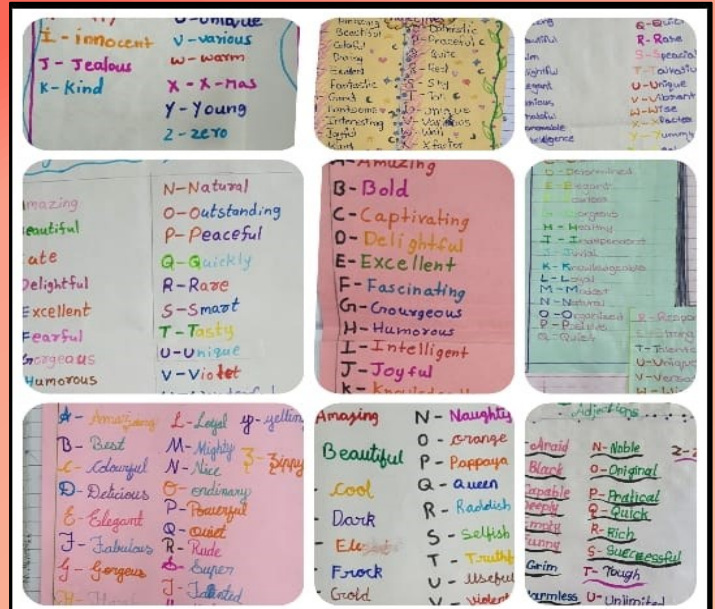 I - innocent
J - Jealous
K - Kind
U - Unique
V - various
W - warm
X - X-mas
Y - Young
Z - zero
Amazing
Beautiful
Colorful
Daring
Fantastic
Handsome
Interesting
Joyful
Kind
Optimistic
Peaceful
Quite
Rest
Shy
Tall
Unique
Various
X factor
Q - Quick
R - Rose
S - Special
T - Talkative
U - Unique
V - Vibrant
W - Wise
Y - Yummy
mazing
eautiful
ute
Delightful
Excellent
Fearful
Gorgeous
Humorous
N - Natural
O - Outstanding
P - Peaceful
Q - Quickly
R - Rare
S - Smart
T - Tasty
U - Unique
V - Violet
A - Amuzing
B - Bold
C - Captivating
D - Delightful
E - Excellent
F - Fascinating
G - Gourgeous
H - Humorous
I - Intelligent
J - Joyful
D - Determined
E - Elegant
H - Healthy
I - Independent
J - Jovial
K - Knowledgeable
L - Loyal
M - Modest
N - Natural
O - Organised
P - Positive
Q - Quiet
T - Talented
U - Unique
B - Best
C - Colourful
D - Delicious
E - Elegant
F - Fabulous
G - Gorgeus
L - Loyal
M - Mighty
N - Nice
O - ordinary
P - Powerful
Q - Quiet
R - Rude
S - Super
T - Talented
y - yelling
Z - Zippy
Amazing
Beautiful
Cool
Dark
Frock
Gold
N - Naughty
O - orange
P - Pappaya
Q - Queen
R - Raddish
S - Selfish
T - Truthf
U - Useful
V - violent
Adjections
Araid
Black
Capable
Deeply
Empty
Funny
Grim
armless
N - Noble
O - Original
P - Pratical
Q - Quick
R - Rich
S - Successful
T - Tough
U - Unlimited